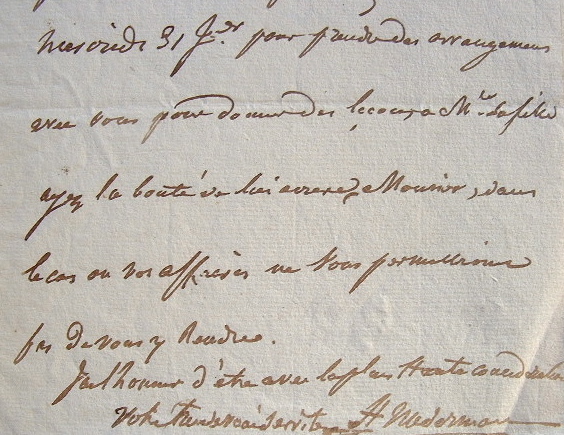 mercredi 31 J.er pour prendre des arrangemens
avec vous pour donner des leçons a Mlle sa fille
ayez la bonté de lui ecrire, Monsieur, dans
le cas ou vos affaires ne vous permettrions
pas de vous y Rendre.
J'ai l'honneur d'être avec la plus Haute consideration
Votre serviteur